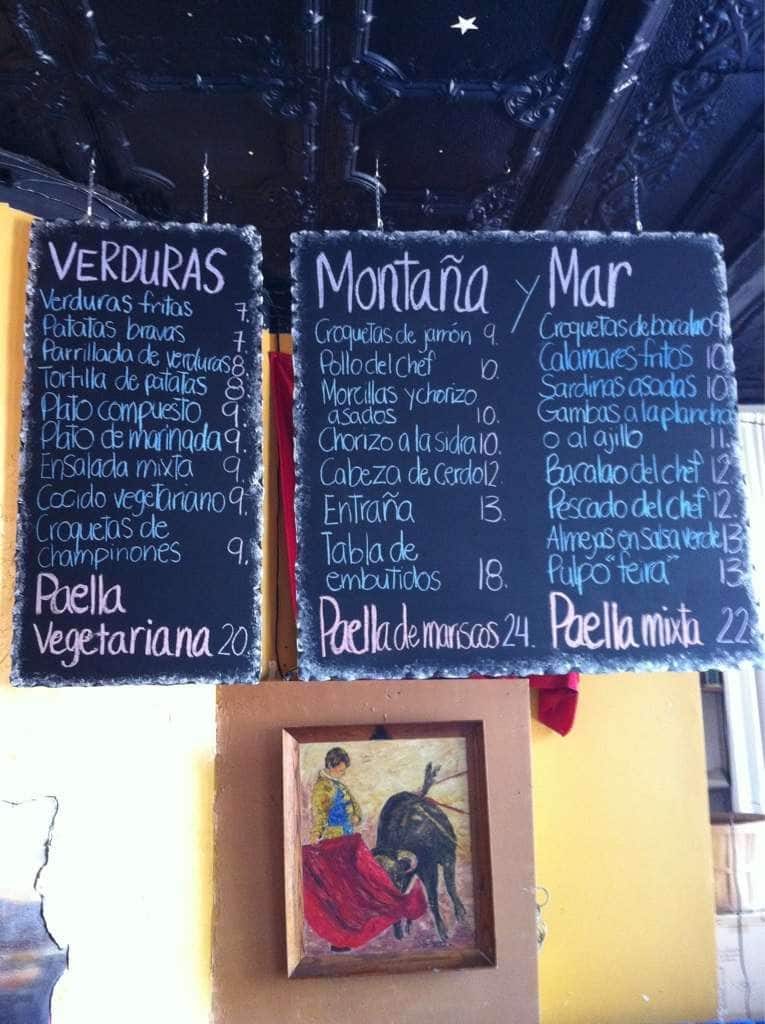 VERDURAS
Verduras fritas 7.
Patatas bravas 7.
Parrillada de verduras 8.
Tortilla de patatas 8.
Plato compuesto 9.
Plato de marinada 9.
Ensalada mixta 9.
Cocido vegetariano 9.
Croquetas de
champinones 9.
Paella
Vegetariana 20.
Montaña y Mar
Croquetas de jamón 9.
Pollo del chef 10.
Morcillas y chorizo
asados 10.
Chorizo a la sidra 10.
Cabeza de cerdo 12.
Entraña 13.
Tabla de
embutidos 18.
Paella de mariscos 24.
Croquetas de bacalao 9.
Calamares fritos 10.
Sardinas asadas 10.
Gambas a la plancha
o al ajillo 11.
Bacalao del chef 12.
Pescado del chef 12.
Almejas en salsa verde 13.
Pulpo "feira" 13.
Paella mixta 22.